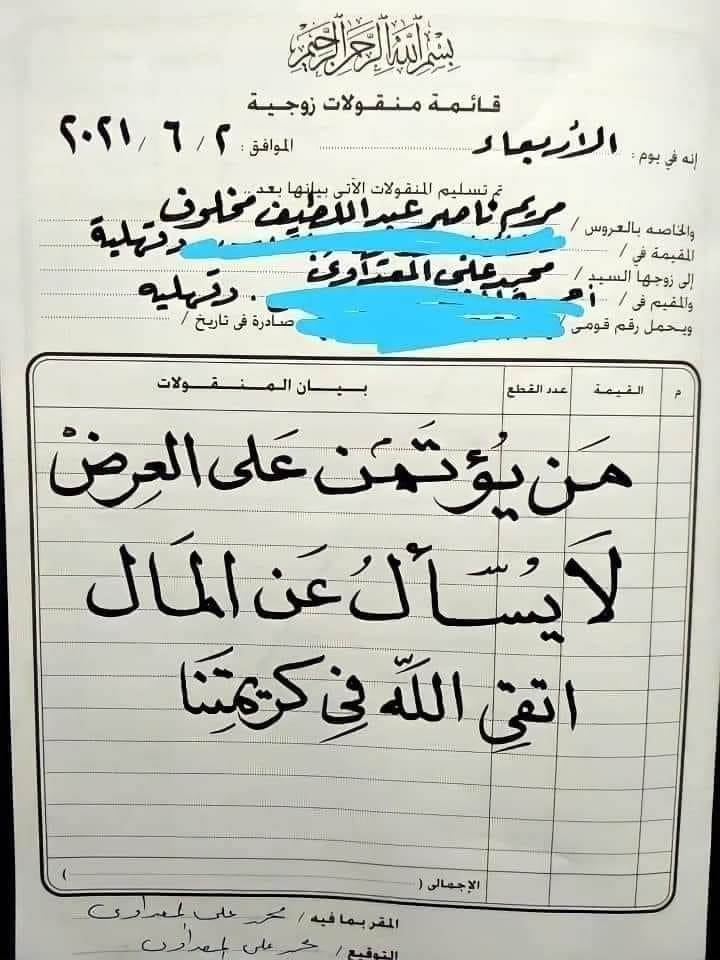 بسم الله الرحمن الرحيم
قائمة منقولات زوجية
إنه في يوم : الأربعاء الموافق : ٢ / ٦ / ٢٠٢١
تم تسليم المنقولات الآتى بيانها بعد ..
والخاصه بالعروس / مريم ناصر عبد اللطيف مخلوف
المقيمة في / دقهلية
إلى زوجها السيد / محمد على المعداوى
والمقيم فى / دقهليه
ويحمل رقم قومى / صادرة فى تاريخ /
م القيمة عدد القطع بيان المنقولات
مَن يُؤتَمَن عَلى العِرضْ
لَا يُسّأَلُ عَن المَال
اتقِي اللَّه فِي كَريمتِنَا
الإجمالى ( )
المقر بما فيه / محمد على المعداوى
التوقيع / محمد على المعداوى